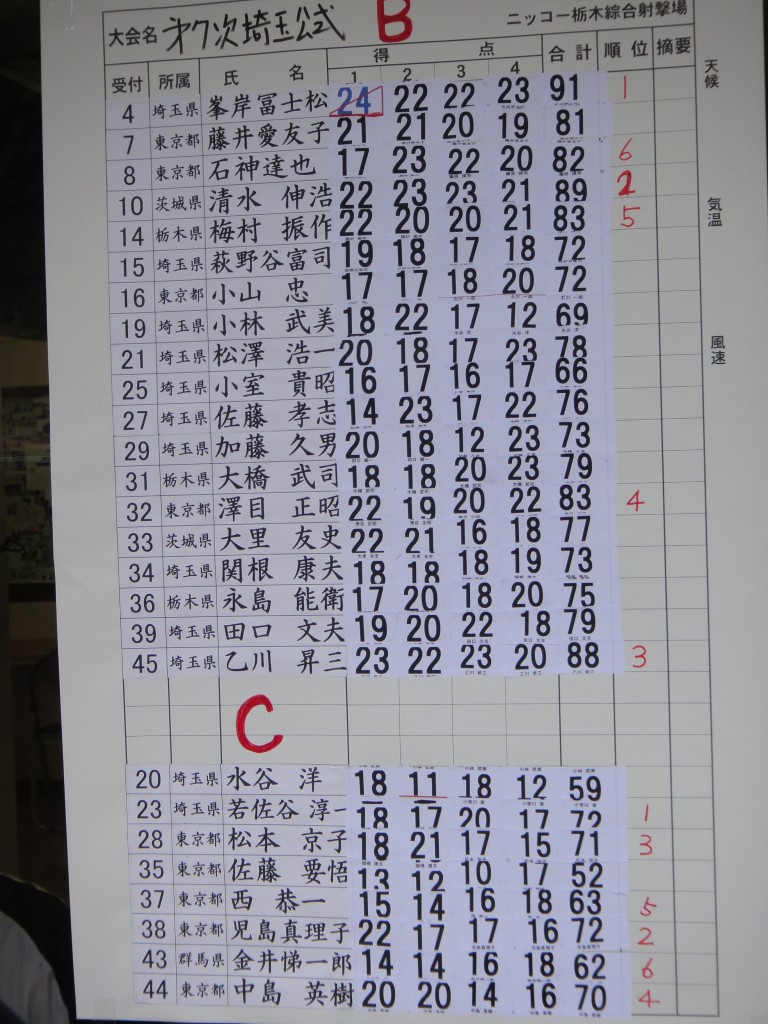 大会名 第7次埼玉公式 B ニッコー栃木綜合射撃場
受付 所属 氏名 得点 合計 順位 摘要
1 2 3 4
天候
4 埼玉県 峯岸冨士松 24 22 22 23 91 1
7 東京都 藤井愛友子 21 21 20 19 81
8 東京都 石神達也 17 23 22 20 82 6
10 茨城県 清水 伸浩 22 23 23 21 89 2
気温
14 栃木県 梅村 振作 22 20 20 21 83 5
15 埼玉県 萩野谷富司 19 18 17 18 72
16 東京都 小山 忠 17 17 18 20 72
19 埼玉県 小林 武美 18 22 17 12 69
風速
21 埼玉県 松澤 浩一 20 18 17 23 78
25 埼玉県 小室 貴昭 16 17 16 17 66
27 埼玉県 佐藤 孝志 14 23 17 22 76
29 埼玉県 加藤 久男 20 18 12 23 73
31 栃木県 大橋 武司 18 18 20 23 79
32 東京都 澤目 正昭 22 19 20 22 83 4
33 茨城県 大里 友史 22 21 16 18 77
34 埼玉県 関根 康夫 18 18 18 19 73
36 栃木県 永島 能衛 17 20 18 20 75
39 埼玉県 田口 文夫 19 20 22 18 79
45 埼玉県 乙川 昇三 23 22 23 20 88 3
C
20 埼玉県 水谷 洋 18 11 18 12 59
23 埼玉県 若佐谷淳一 18 17 20 17 72 1
28 東京都 松本 京子 18 21 17 15 71 3
35 東京都 佐藤 要悟 13 12 10 17 52
37 東京都 西 恭一 15 14 16 18 63 5
38 東京都 児島真理子 22 17 17 16 72 2
43 群馬県 金井悌一郎 14 14 16 18 62 6
44 東京都 中島 英樹 20 20 14 16 70 4